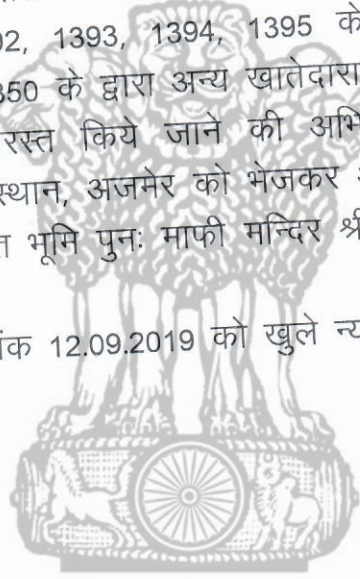 02, 1393, 1394, 1395 के
350 के द्वारा अन्य खातेदारा
रस्त किये जाने की अभि
स्थान, अजमेर को भेजकर
त भूमि पुनः माफी मन्दिर श्री
क 12.09.2019 को खुले न्य